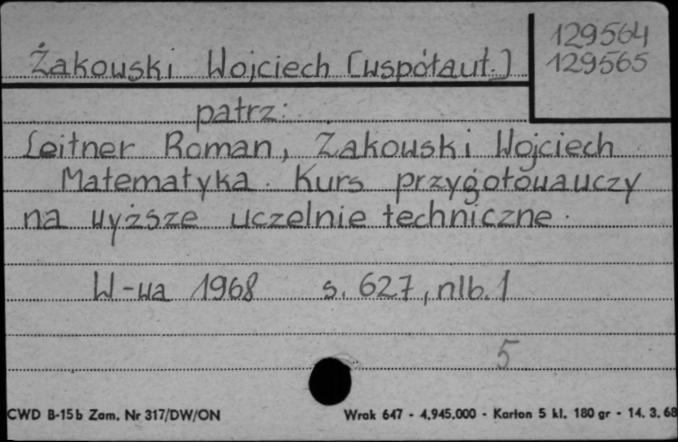 129564
129565
Żakowski Wojciech [współaut.]
patrz:
Leitner Roman, Żakowski Wojciech
Matematyka. Kurs przygotowawczy
na wyższe uczelnie techniczne.
W-wa 1968 s. 627, nlb. 1
5
CWD B-15b Zam. Nr 317/DW/ON
Wrak 647 - 4.945.000 - Karton 5 kl. 180 gr - 14. 3. 68